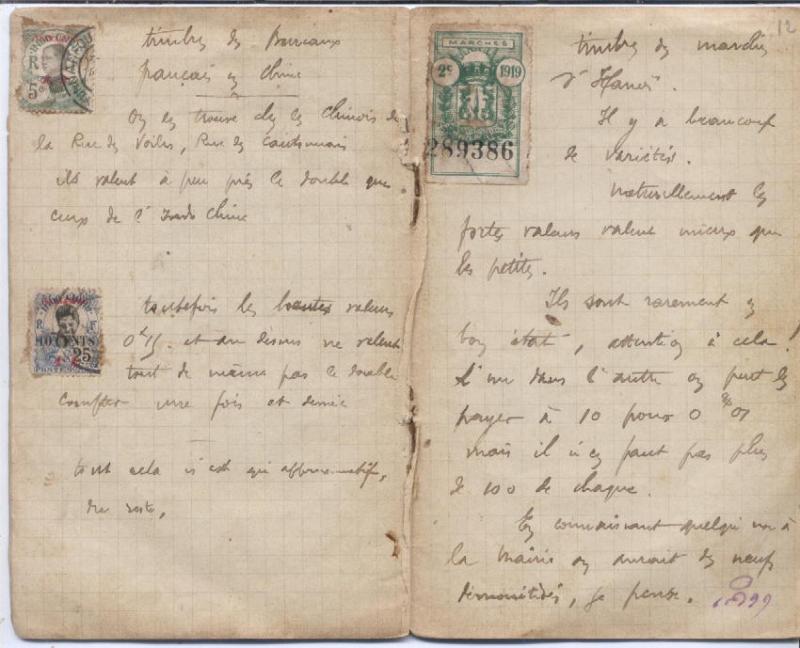 timbres des Bureaux
français en Chine
On en trouve chez les chinois de
la Rue des Voiles, Rue des Cantonnais
ils valent à peu près le double que
ceux de l'Indo Chine
toutefois les hautes valeurs
et au dessus ne valent
tout de même pas le double
compter une fois et demie
tout cela n'est qu'approximatif,
du reste,
INDO-CHINE
R
5
INDO-CHINE
R F
10 CENTS
25
POSTES
12
MARCHÉS
2c 1919
289386
timbres des marchés
d'Hanoi.
Il y a beaucoup
de variétés.
naturellement les
fortes valeurs valent mieux que
les petites.
Ils sont rarement en
bon état, attention à cela!
L'un dans l'autre on peut les
payer à 10 pour 0
mais il n'en faut pas plus
de 100 de chaque.
En connaissant quelqu'un à
la mairie on aurait des neufs
démonétisés, je pense.